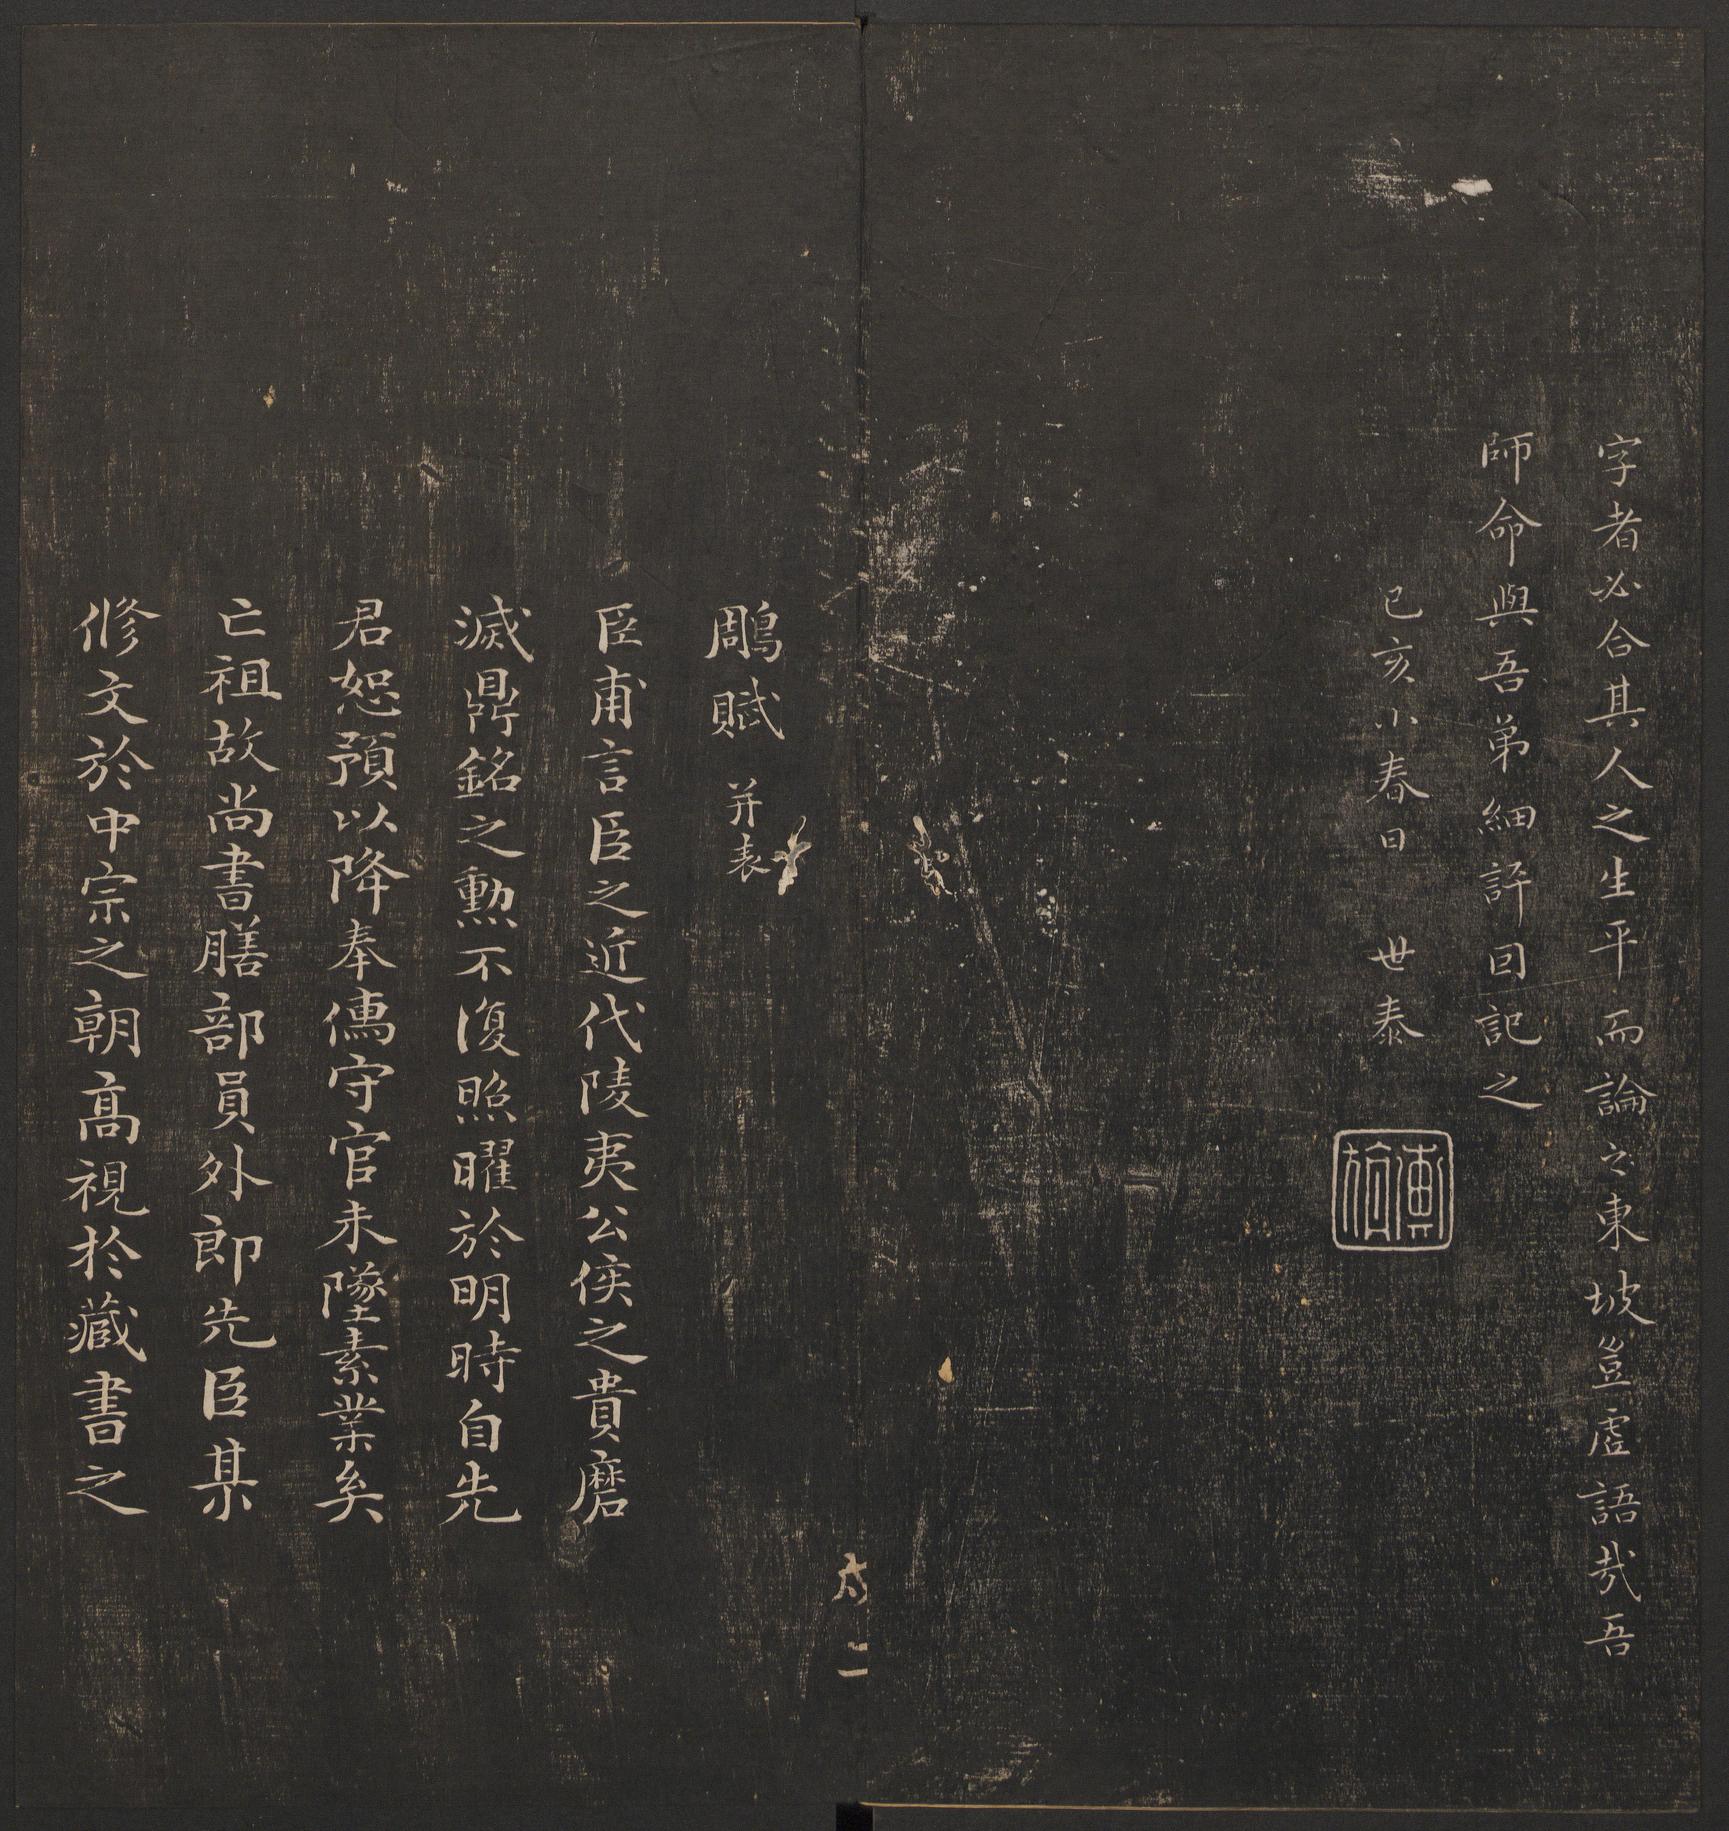 字者必合其人之生平而論之東坡豈虛語哉吾
師命與吾弟細評回記之
己亥小春日 世泰
雕賦 并表
臣甫言臣之近代陵夷公侯之貴磨
滅鼎銘之勲不復照曜於明時自先
君恕預以降奉儒守官未墜素業矣
亡祖故尚書膳部員外郎先臣某
修文於中宗之朝高視於藏書之
二